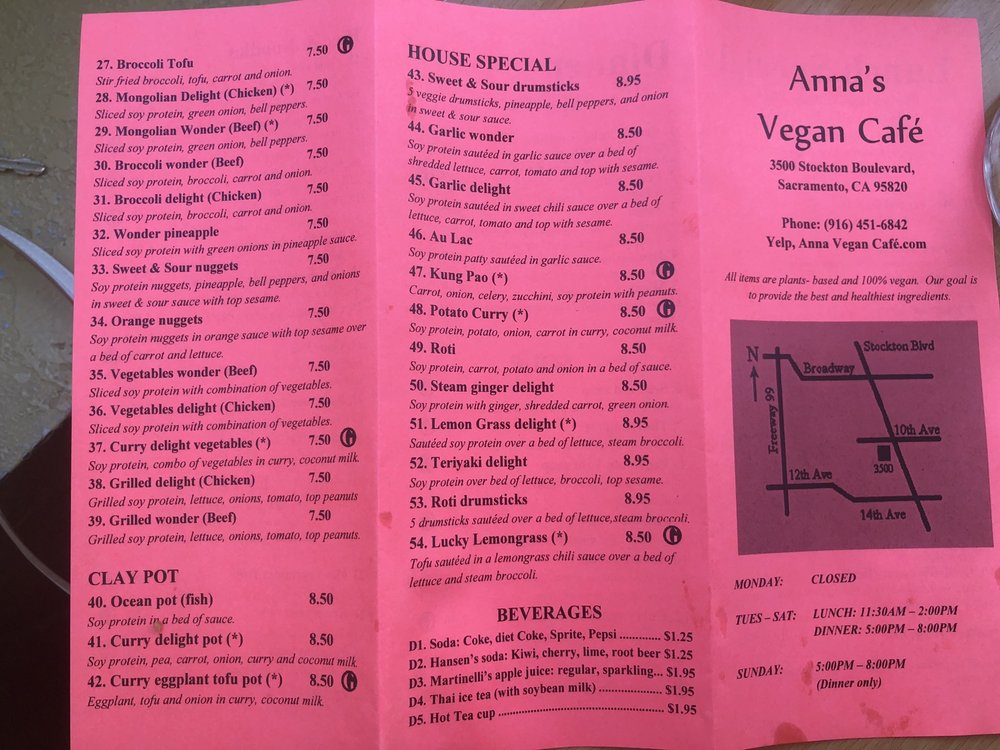 27. Broccoli Tofu 7.50 G
Stir fried broccoli, tofu, carrot and onion.
28. Mongolian Delight (Chicken) (*) 7.50
Sliced soy protein, green onion, bell peppers.
29. Mongolian Wonder (Beef) (*) 7.50
Sliced soy protein, green onion, bell peppers.
30. Broccoli wonder (Beef) 7.50
Sliced soy protein, broccoli, carrot and onion.
31. Broccoli delight (Chicken) 7.50
Sliced soy protein, broccoli, carrot and onion.
32. Wonder pineapple 7.50
Sliced soy protein with green onions in pineapple sauce.
33. Sweet & Sour nuggets 7.50
Soy protein nuggets, pineapple, bell peppers, and onions
in sweet & sour sauce with top sesame.
34. Orange nuggets 7.50
Soy protein nuggets in orange sauce with top sesame over
a bed of carrot and lettuce.
35. Vegetables wonder (Beef) 7.50
Sliced soy protein with combination of vegetables.
36. Vegetables delight (Chicken) 7.50
Sliced soy protein with combination of vegetables.
37. Curry delight vegetables (*) 7.50 G
Soy protein, combo of vegetables in curry, coconut milk.
38. Grilled delight (Chicken) 7.50
Grilled soy protein, lettuce, onions, tomato, top peanuts
39. Grilled wonder (Beef) 7.50
Grilled soy protein, lettuce, onions, tomato, top peanuts.
CLAY POT
40. Ocean pot (fish) 8.50
Soy protein in a bed of sauce.
41. Curry delight pot (*) 8.50
Soy protein, pea, carrot, onion, curry and coconut milk.
42. Curry eggplant tofu pot (*) 8.50 G
Eggplant, tofu and onion in curry, coconut milk.
HOUSE SPECIAL
43. Sweet & Sour drumsticks 8.95
5 veggie drumsticks, pineapple, bell peppers, and onion
in sweet & sour sauce.
44. Garlic wonder 8.50
Soy protein sautéed in garlic sauce over a bed of
shredded lettuce, carrot, tomato and top with sesame.
45. Garlic delight 8.50
Soy protein sautéed in sweet chili sauce over a bed of
lettuce, carrot, tomato and top with sesame.
46. Au Lac 8.50
Soy protein patty sautéed in garlic sauce.
47. Kung Pao (*) 8.50 G
Carrot, onion, celery, zucchini, soy protein with peanuts.
48. Potato Curry (*) 8.50 G
Soy protein, potato, onion, carrot in curry, coconut milk.
49. Roti 8.50
Soy protein, carrot, potato and onion in a bed of sauce.
50. Steam ginger delight 8.50
Soy protein with ginger, shredded carrot, green onion.
51. Lemon Grass delight (*) 8.95
Sautéed soy protein over a bed of lettuce, steam broccoli.
52. Teriyaki delight 8.95
Soy protein over bed of lettuce, broccoli, top sesame.
53. Roti drumsticks 8.95
5 drumsticks sautéed over a bed of lettuce,steam broccoli.
54. Lucky Lemongrass (*) 8.50 G
Tofu sautéed in a lemongrass chili sauce over a bed of
lettuce and steam broccoli.
BEVERAGES
D1. Soda: Coke, diet Coke, Sprite, Pepsi ............ $1.25
D2. Hansen's soda: Kiwi, cherry, lime, root beer $1.25
D3. Martinelli's apple juice: regular, sparkling... $1.95
D4. Thai ice tea (with soybean milk) .................. $1.95
D5. Hot Tea cup ................................................ $1.95
Anna's
Vegan Café
3500 Stockton Boulevard,
Sacramento, CA 95820
Phone: (916) 451-6842
Yelp, Anna Vegan Café.com
All items are plants- based and 100% vegan. Our goal is
to provide the best and healthiest ingredients.
N
Stockton Blvd
Broadway
Freeway 99
10th Ave
3500
12th Ave
14th Ave
MONDAY: CLOSED
TUES – SAT: LUNCH: 11:30AM – 2:00PM
DINNER: 5:00PM – 8:00PM
SUNDAY: 5:00PM – 8:00PM
(Dinner only)